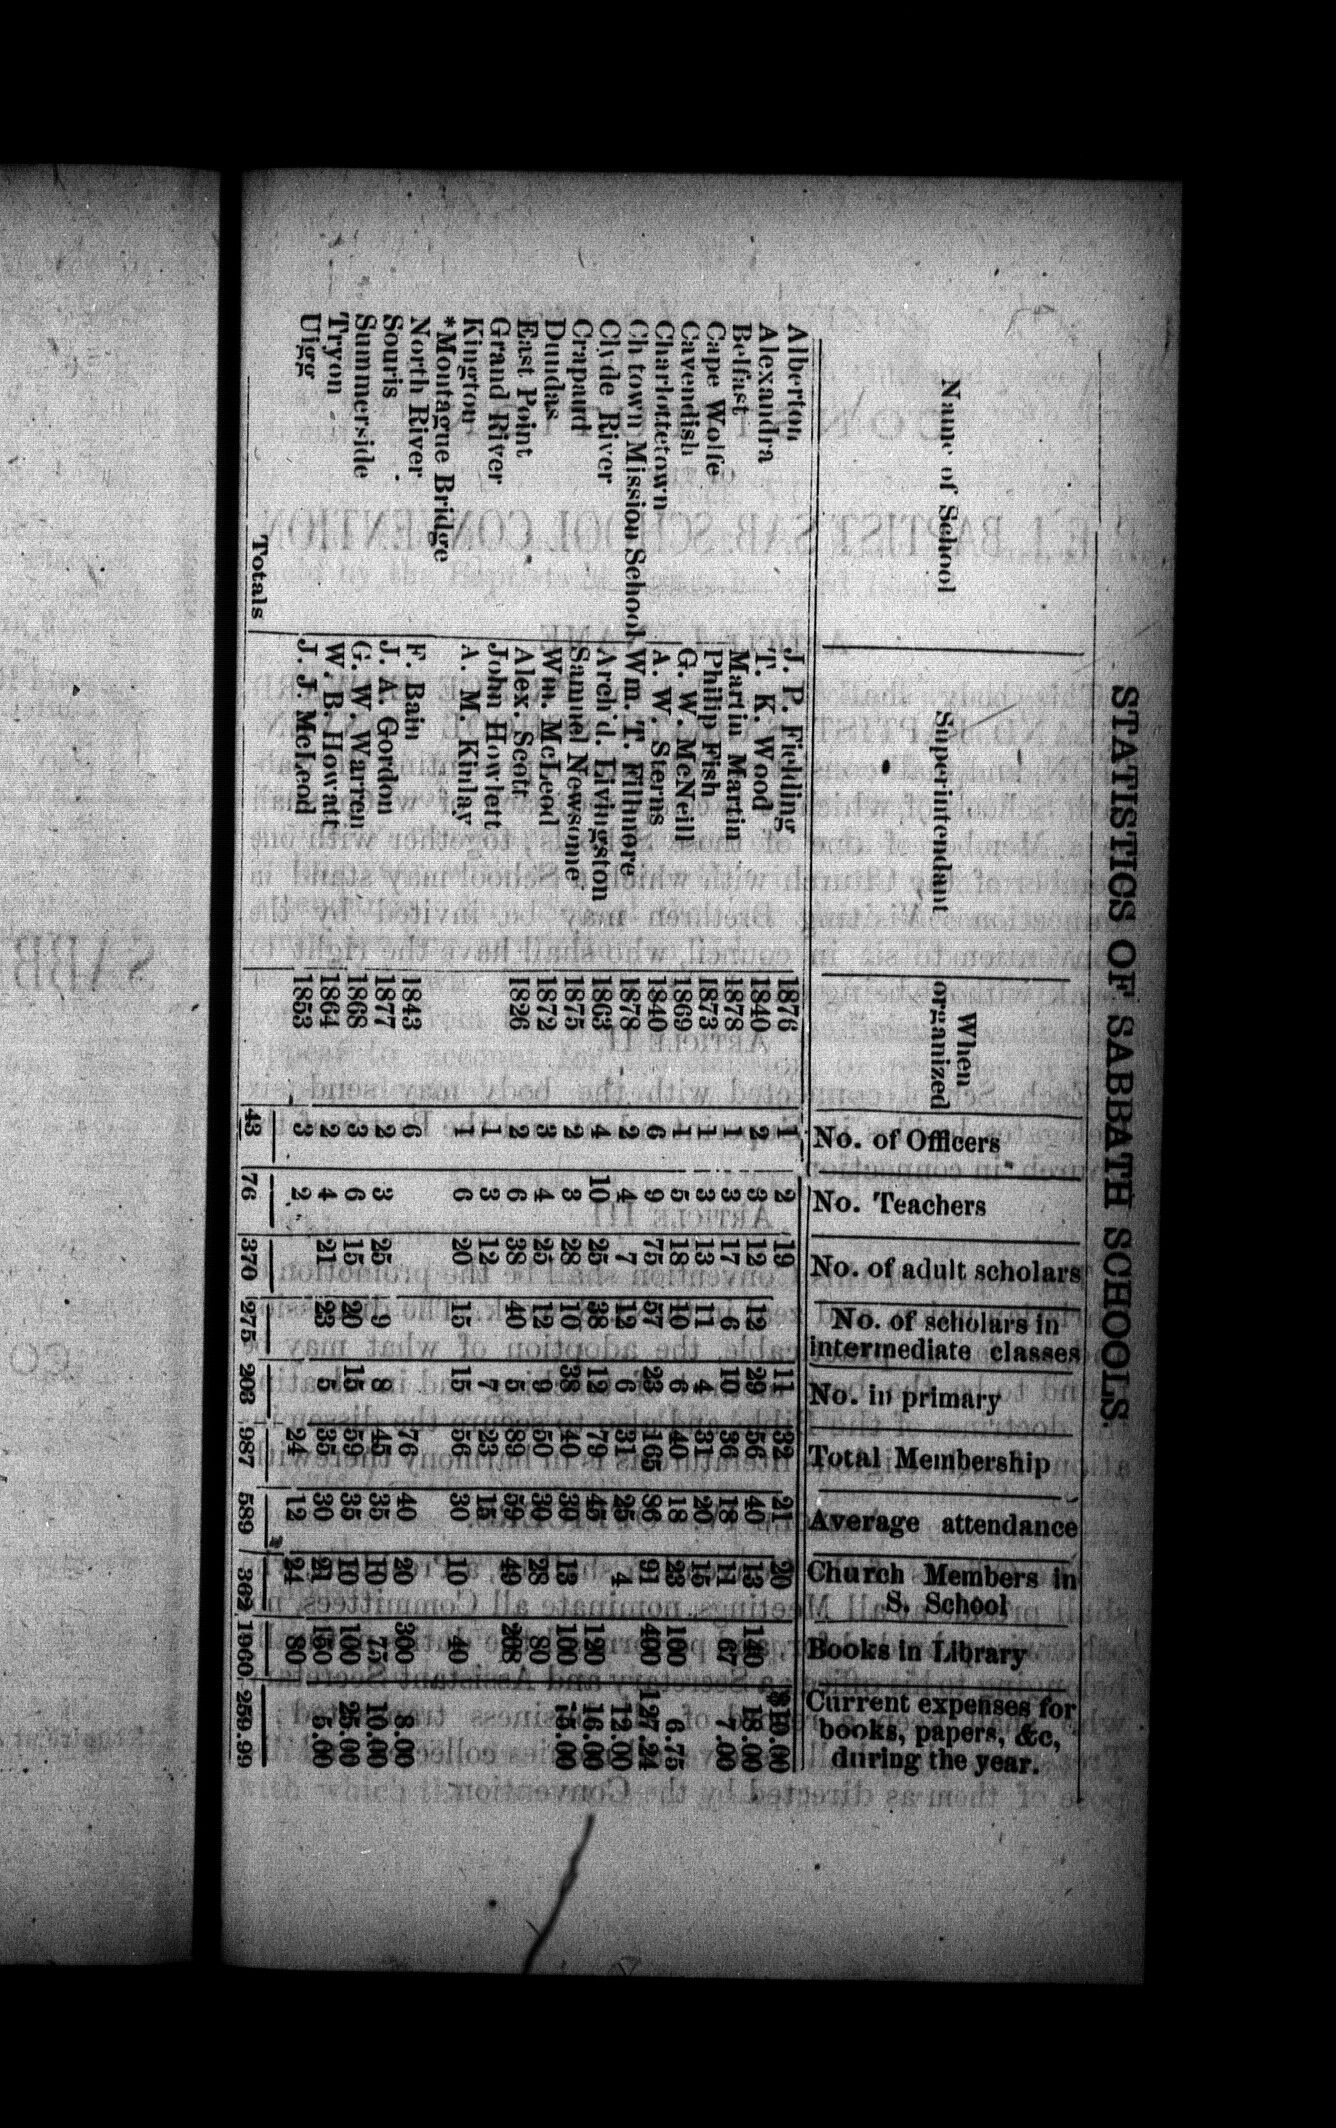 STATISTICS OF SABBATH SCHOOLS.
Name of School Superintendant When organized No. of Officers No. Teachers No. of adult scholars No. of scholars in intermediate classes No. in primary Total Membership Average attendance Church Members in S. School Books in Library Current expenses for books, papers, &c, during the year.
Alberton J. P. Fielding 1876 1 2 19 11 32 21 20 $10.00
Alexandra T. K. Wood 1840 2 3 12 12 29 56 40 13 140 18.00
Belfast Martin Martin 1878 1 3 17 6 10 36 18 11 67 7.00
Cape Wolfe Philip Fish 1873 1 3 13 11 4 31 20 15
Cavendish G. W. McNeill 1869 1 5 18 10 6 40 18 23 100 6.75
Charlottetown A. W. Sterns 1840 6 9 75 57 23 165 86 91 400 127.24
Ch town Mission School Wm. T. Fillmore 1878 2 4 7 12 6 31 25 4 12.00
Clyde River Arch'd. Livingston 1863 4 10 25 38 12 79 45 120 16.00
Crapaud Samuel Newsome 1875 2 3 28 10 38 40 30 13 100 15.00
Dundas Wm. McLeod 1872 3 4 25 12 9 50 30 28 80
East Point Alex. Scott 1826 2 6 38 40 5 89 59 49 208
Grand River John Howlett 1 3 12 7 23 15
Kington A. M. Kinlay 1 6 20 15 15 56 30 10 40
*Montague Bridge
North River F. Bain 1843 6 76 40 20 300 8.00
Souris J. A. Gordon 1877 2 3 25 9 8 45 35 10 75 10.00
Summerside G. W. Warren 1868 3 6 15 20 15 59 35 10 100 25.00
Tryon W. B. Howatt 1864 2 4 21 23 5 35 30 21 150 5.00
Uigg J. J. McLeod 1853 3 2 24 12 24 80
Totals 43 76 370 275 203 987 589 362 1960 259.99